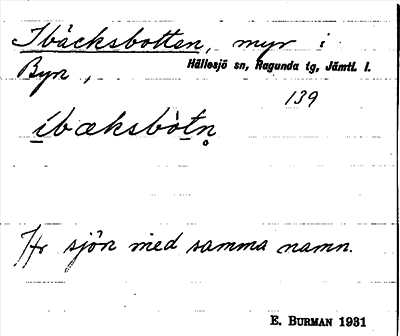 Ibäcksbotten, myr i
Byn,
Hällesjö sn, Ragunda tg, Jämtl. l.
139
íbæksbòtn̥
Hr sjön med samma namn.
E. BURMAN 1931